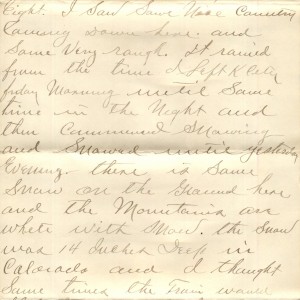 Eight. I Saw Some Nice Country
Coming Down here. and
Some Very rough. It rained
from the time I Left K City
friday Morning until Some
time in the Night and
then Commenced Snowing
and Snowed until yesterday
Evening. there is Some
Snow on the Ground here
and the Mountains are
white with Snow. the Snow
was 14 Inches Deep in
Colorado and I thought
Some times the Train would